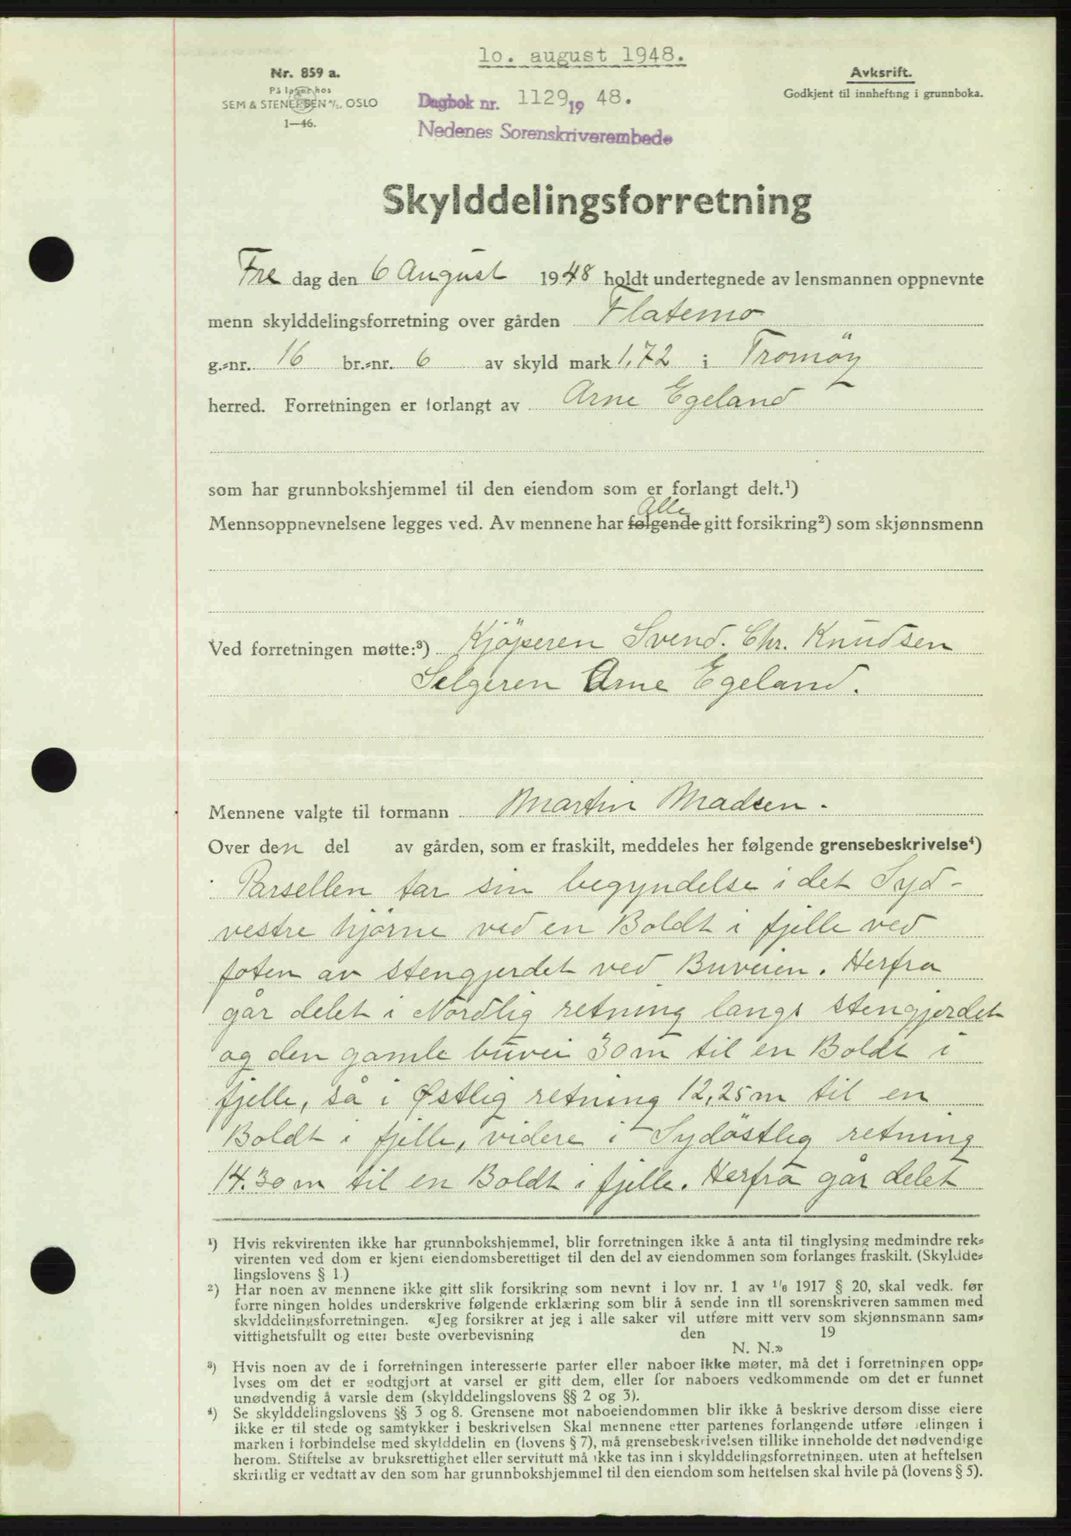 10. august 1948.
Nr. 859 a.
På lager hos
SEM & STENERSEN A/S. OSLO
1—46.
Avksrift.
Godkjent til innhefting i grunnboka.
Dagbok nr. 1129 19 48.
Nedenes Sorenskriverembede
Skylddelingsforretning
Fre dag den 6 August 1948 holdt undertegnede av lensmannen oppnevnte
menn skylddelingsforretning over gården Flatemo
g.-nr. 16 br.-nr. 6 av skyld mark 1,72 i Tromöy
herred. Forretningen er forlangt av Arne Egeland
som har grunnbokshjemmel til den eiendom som er forlangt delt.¹)
Alle
Mennsoppnevnelsene legges ved. Av mennene har følgende gitt forsikring²) som skjønnsmenn
Ved forretningen møtte:³) Kjöperen Svend. Chr. Knudsen
Selgeren Arne Egeland.
Mennene valgte til formann Martin Madsen.
Over den del av gården, som er fraskilt, meddeles her følgende grensebeskrivelse⁴)
Parsellen tar sin begyndelse i det Syd-
vestre hjørne ved en Boldt i fjelle ved
foten av stengjerdet ved Buveien. Herfra
går delet i Nordlig retning langs stengjerdet
og den gamle buvei 30 m til en Boldt i
fjelle, så i Østlig retning 12,25 m til en
Boldt i fjelle, videre i Sydöstlig retning
14.30 m til en Boldt i fjelle. Herfra går delet
¹) Hvis rekvirenten ikke har grunnbokshjemmel, blir forretningen ikke å anta til tinglysing medmindre rek-
virenten ved dom er kjent eiendomsberettiget til den del av eiendommen som forlanges fraskilt. (Skyldde-
lingslovens § 1.)
²) Har noen av mennene ikke gitt slik forsikring som nevnt i lov nr. 1 av 1/6 1917 § 20, skal vedk. før
forretningen holdes underskrive følgende erklæring som blir å sende inn til sorenskriveren sammen med
skylddelingsforretningen. «Jeg forsikrer at jeg i alle saker vil utføre mitt verv som skjønnsmann sam-
vittighetsfullt og etter beste overbevisning den 19
N. N.»
³) Hvis noen av de i forretningen interesserte parter eller naboer ikke møter, må det i forretningen opp-
lyses om det er godtgjort at varsel er gitt dem, eller for naboers vedkommende om det er funnet
unødvendig å varsle dem (skylddelingslovens §§ 2 og 3).
⁴) Se skylddelingslovens §§ 3 og 8. Grensene mot naboeiendommen blir ikke å beskrive dersom disse eiere
ikke er til stede og samtykker i beskrivelsen Skal mennene etter partenes forlangende utføre delingen i
marken i forbindelse med skylddelingen (lovens § 7), må grensebeskrivelsen tillike inneholde det nødvendige
herom. Stiftelse av bruksrettighet eller servitutt må ikke tas inn i skylddelingsforretningen. uten at heftelsen
skriftlig er vedtatt av den som har grunnbokshjemmel til den eiendom som heftelsen skal hvile på (lovens § 5).